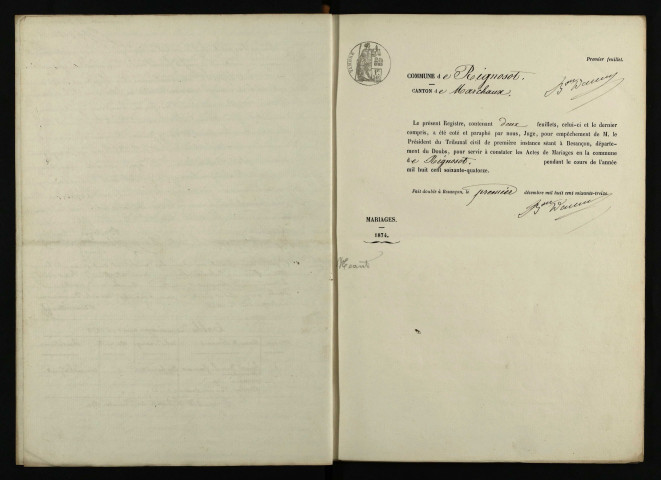 Premier feuillet.
COMMUNE de Rignosot.
CANTON de Marchaux.
Le présent Registre, contenant deux feuillets, celui-ci et le dernier
compris, a été coté et paraphé par nous, Juge, pour empêchement de M. le
Président du Tribunal civil de première instance séant à Besançon, départe-
ment du Doubs, pour servir à constater les Actes de Mariages en la commune
de Rignosot. pendant le cours de l'année
mil huit cent soixante-quatorze.
Fait double à Besançon, le premier décembre mil huit cent soixante-treize.
MARIAGES.
1874.
Néant